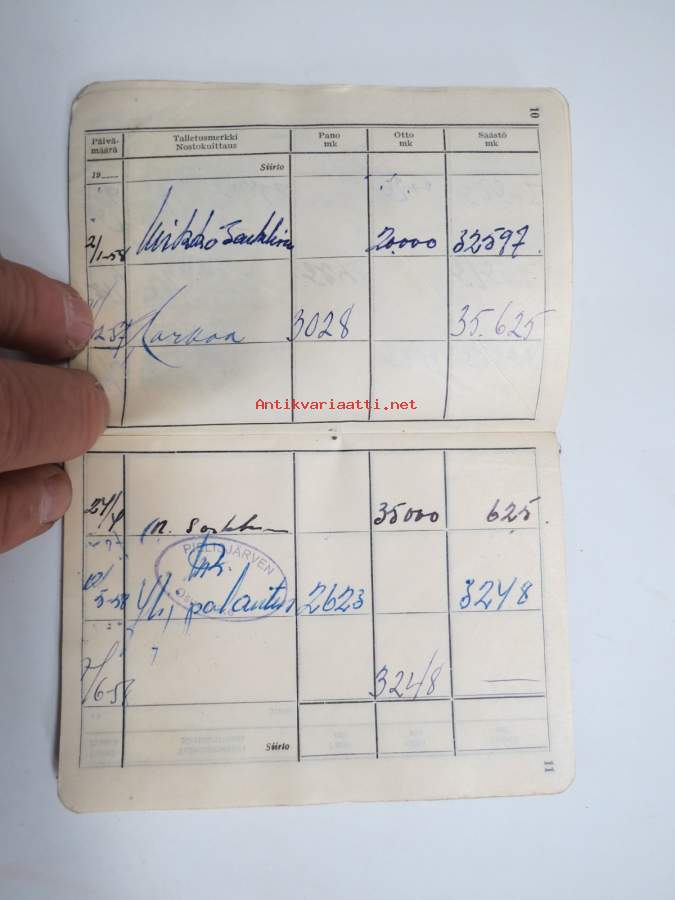 10
Päivä-määrä Talletusmerkki Nostokuittaus Pano mk Otto mk Säästö mk
19 Siirto
2/1-58 20000 32597.
3028 35.625
Antikvariaatti.net
24/4 35000 625.
PIELISJÄRVEN
5-58 Yli, palautus 2623 3248
/6-58 3248 —
Siirto
11